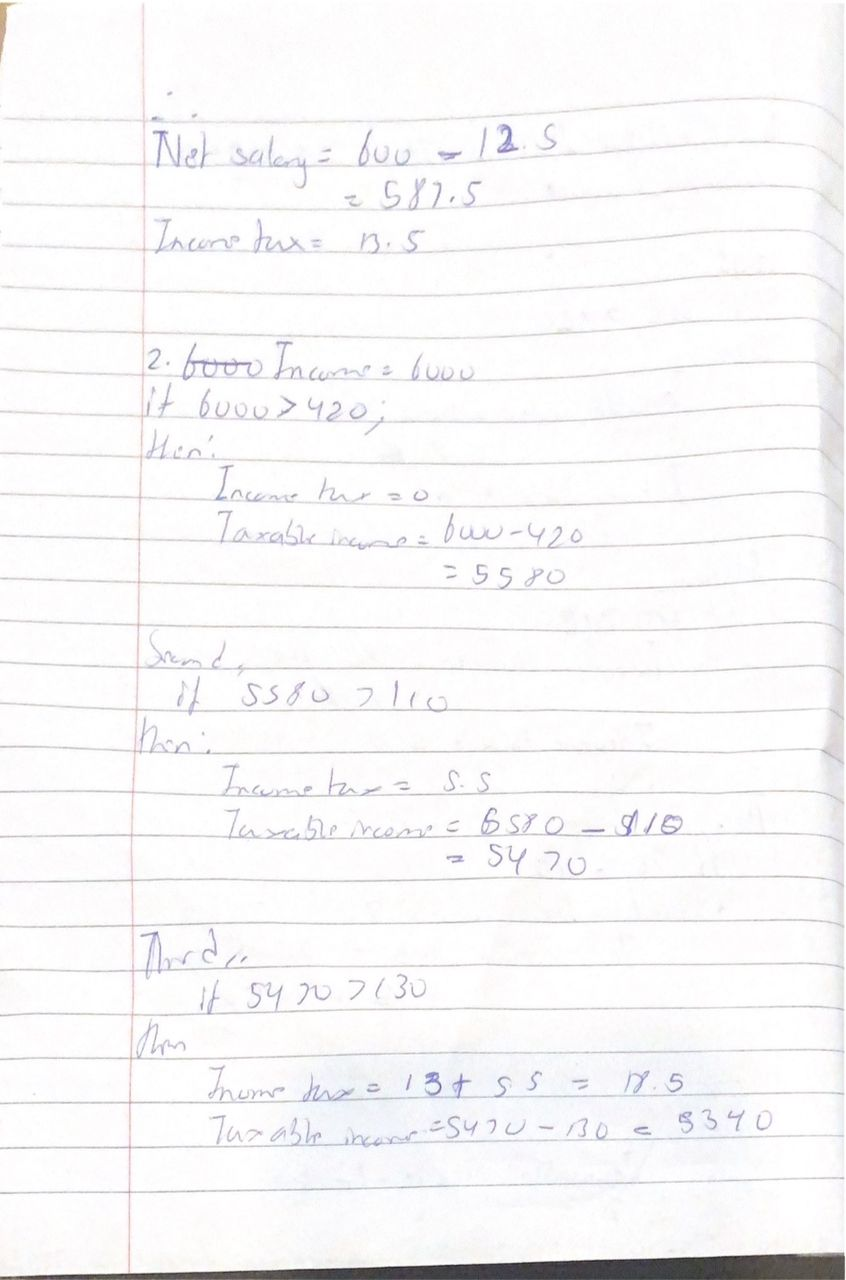 ∴
Net salary = 600 - 12.5
= 587.5
Income tax = 13.5
2. 6000 Income = 6000
if 6000 > 420;
then:
Income tax = 0
Taxable income = 6000 - 420
= 5580
Second,
if 5580 > 110
then:
Income tax = 5.5
Taxable income = 5580 - 110
= 5470
Third,,
if 5470 > 130
then
Income tax = 13 + 5.5 = 18.5
Taxable income = 5470 - 130 = 5340